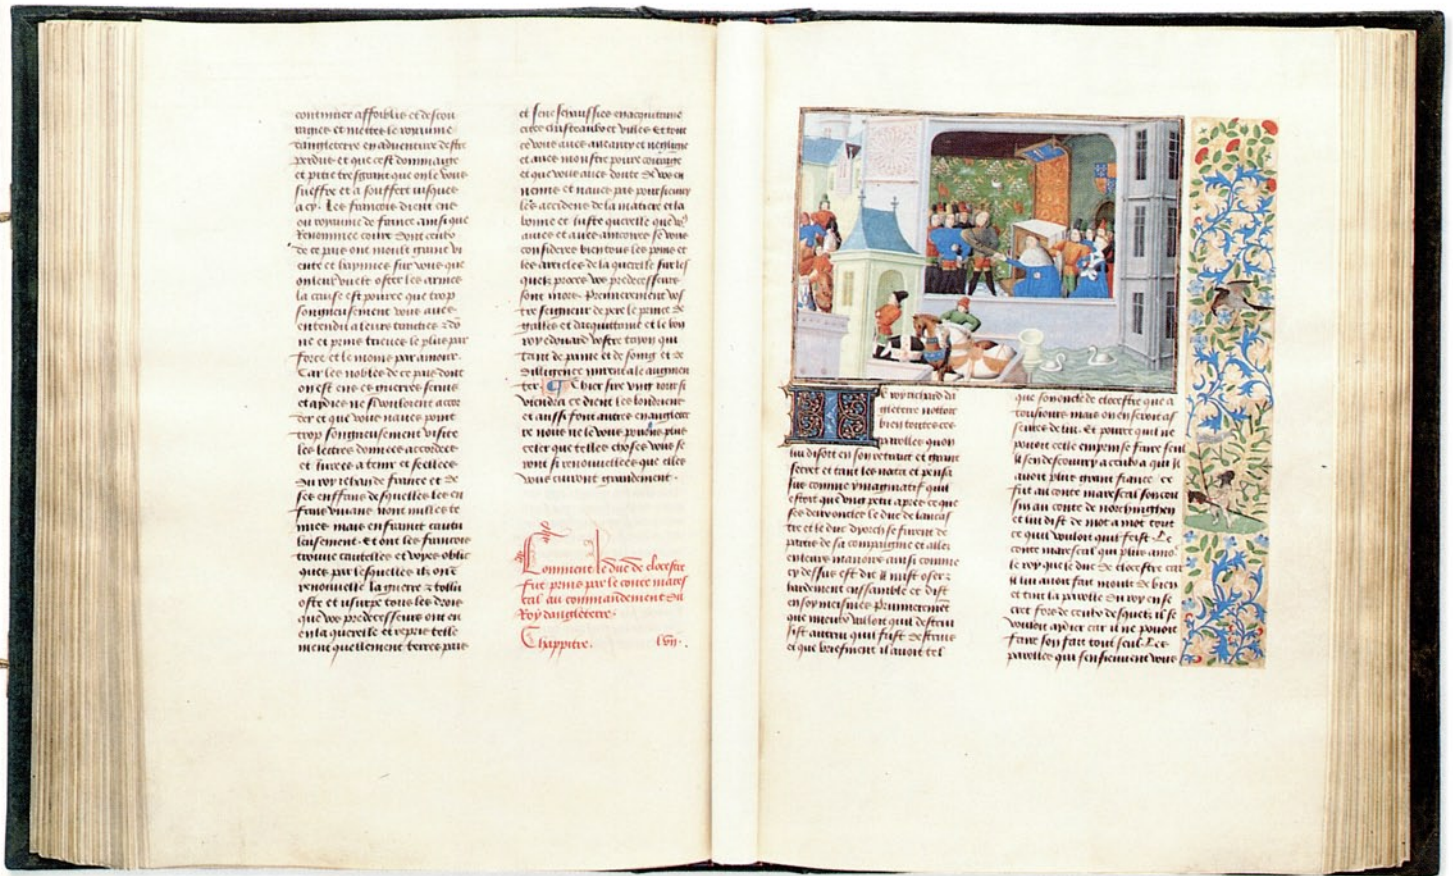 continuer affoiblir et descou
ragier et mettre le royaume
dangleterre en adventure destre
perdus et que cest dommaige
et pitie tresgrant que on le vous
sueffre et a souffert iusques
a cy. Les francois dient ens
ou royaume de france ainsi que
Renommee court dont ceulx
de ce pais ont moult grant vi
la cause est pource que trop
songneusement vous aues
entendu a leurs traicties
ne et prins trieues le plus par
force et le moins par amour.
Car les nobles de ce pais dont
on est ens es guerres seruis
et aydies ne si vouloient accor
der et que vous naues point
trop songneusement visite
les lettres donnees accordees
et iurees a tenir et seellees
du roy iehan de france et de
ses enffans desquelles les en
mies mais en firent
leusement. Et ont les francois
trouue cautelles et voyes oblic
ques par lesquelles ilz ont
renouuelle la guerre et tollu
oste et usurpe tous les drois
que voz predecesseurs ont eu
en la querelle et repris telle
ment quellement terres pais
et seneschaussies en acquitaine
citez chasteaulx et villes Et tout
ce vous aues et neglige
et aues monstre poure couraige
et que vous aues doubte de voz en
nemis et naues pas poursieuvy
les accidens de la matiere et la
bonne et iuste querelle que vous
auies et aues ancores se vous
consideres bien tous les poins et
les articles de la querelle sur les
quelz procez voz predecesseurs
sont mors. Premierement vos
tre seigneur de pere le prince de
galles et dacquittaine et le bon
roy edouard vostre tayon qui
tant de paine et de soing et de
dilligence mirent a le augmen
ter. Chier sire ung iour si
viendra ce dient les londriens
et aussi font autres en angleter
re nous ne le vous pouons plus
celer que telles choses vous se
ront si renouuellees que elles
vous cuiront grandement.
Comment le duc de clocestre
fut prins par le conte mares
cal au commandement du
Roy dangleterre.
Chappitre. lvii.
Le roy richard da
gleterre nottoit
bien toutes ces
parolles quon
lui disoit en son retrait et grant
secret et tant les notta et pensa
sus comme ymaginatif quil
estoit que ung petit apres ce que
ses deux oncles le duc de lancas
tre et le duc dyorch se furent de
partis de sa compaignie et allez
en leurs manoirs ainsi comme
cy dessus est dit Il mist oser z
hardement enssamble et dist
en soy meismes Premierement
que mieulx valloit quil destrui
sist autrui quil fust destruis
et que briefment il auoit tel
que son oncle de clocestre que a
tousiours mais on en seroit as
seurez de lui. Et pource quil ne
pouoit celle emprinse faire seul
Il sen descouury a ceulx a qui il
auoit plus grant fiance ce
fut au conte marescal son cou
sin au conte de northinghen
et lui dist de mot a mot tout
ce quil vouloit quil feist. Le
conte marescal qui plus amoit
le roy que le duc de clocestre car
il lui auoit fait moult de bien
et tint la parolle du roy en se
cret fors de ceulx desquelz il se
vouloit aydier car il ne pouoit
faire son fait tout seul. Les
parolles qui sensieuuent vous